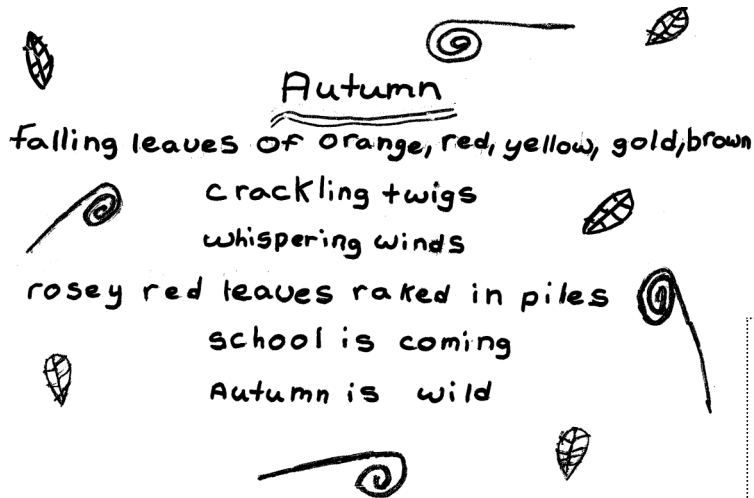 Autumn
falling leaves of orange, red, yellow, gold,brown
crackling twigs
whispering winds
rosey red leaves raked in piles
school is coming
Autumn is wild